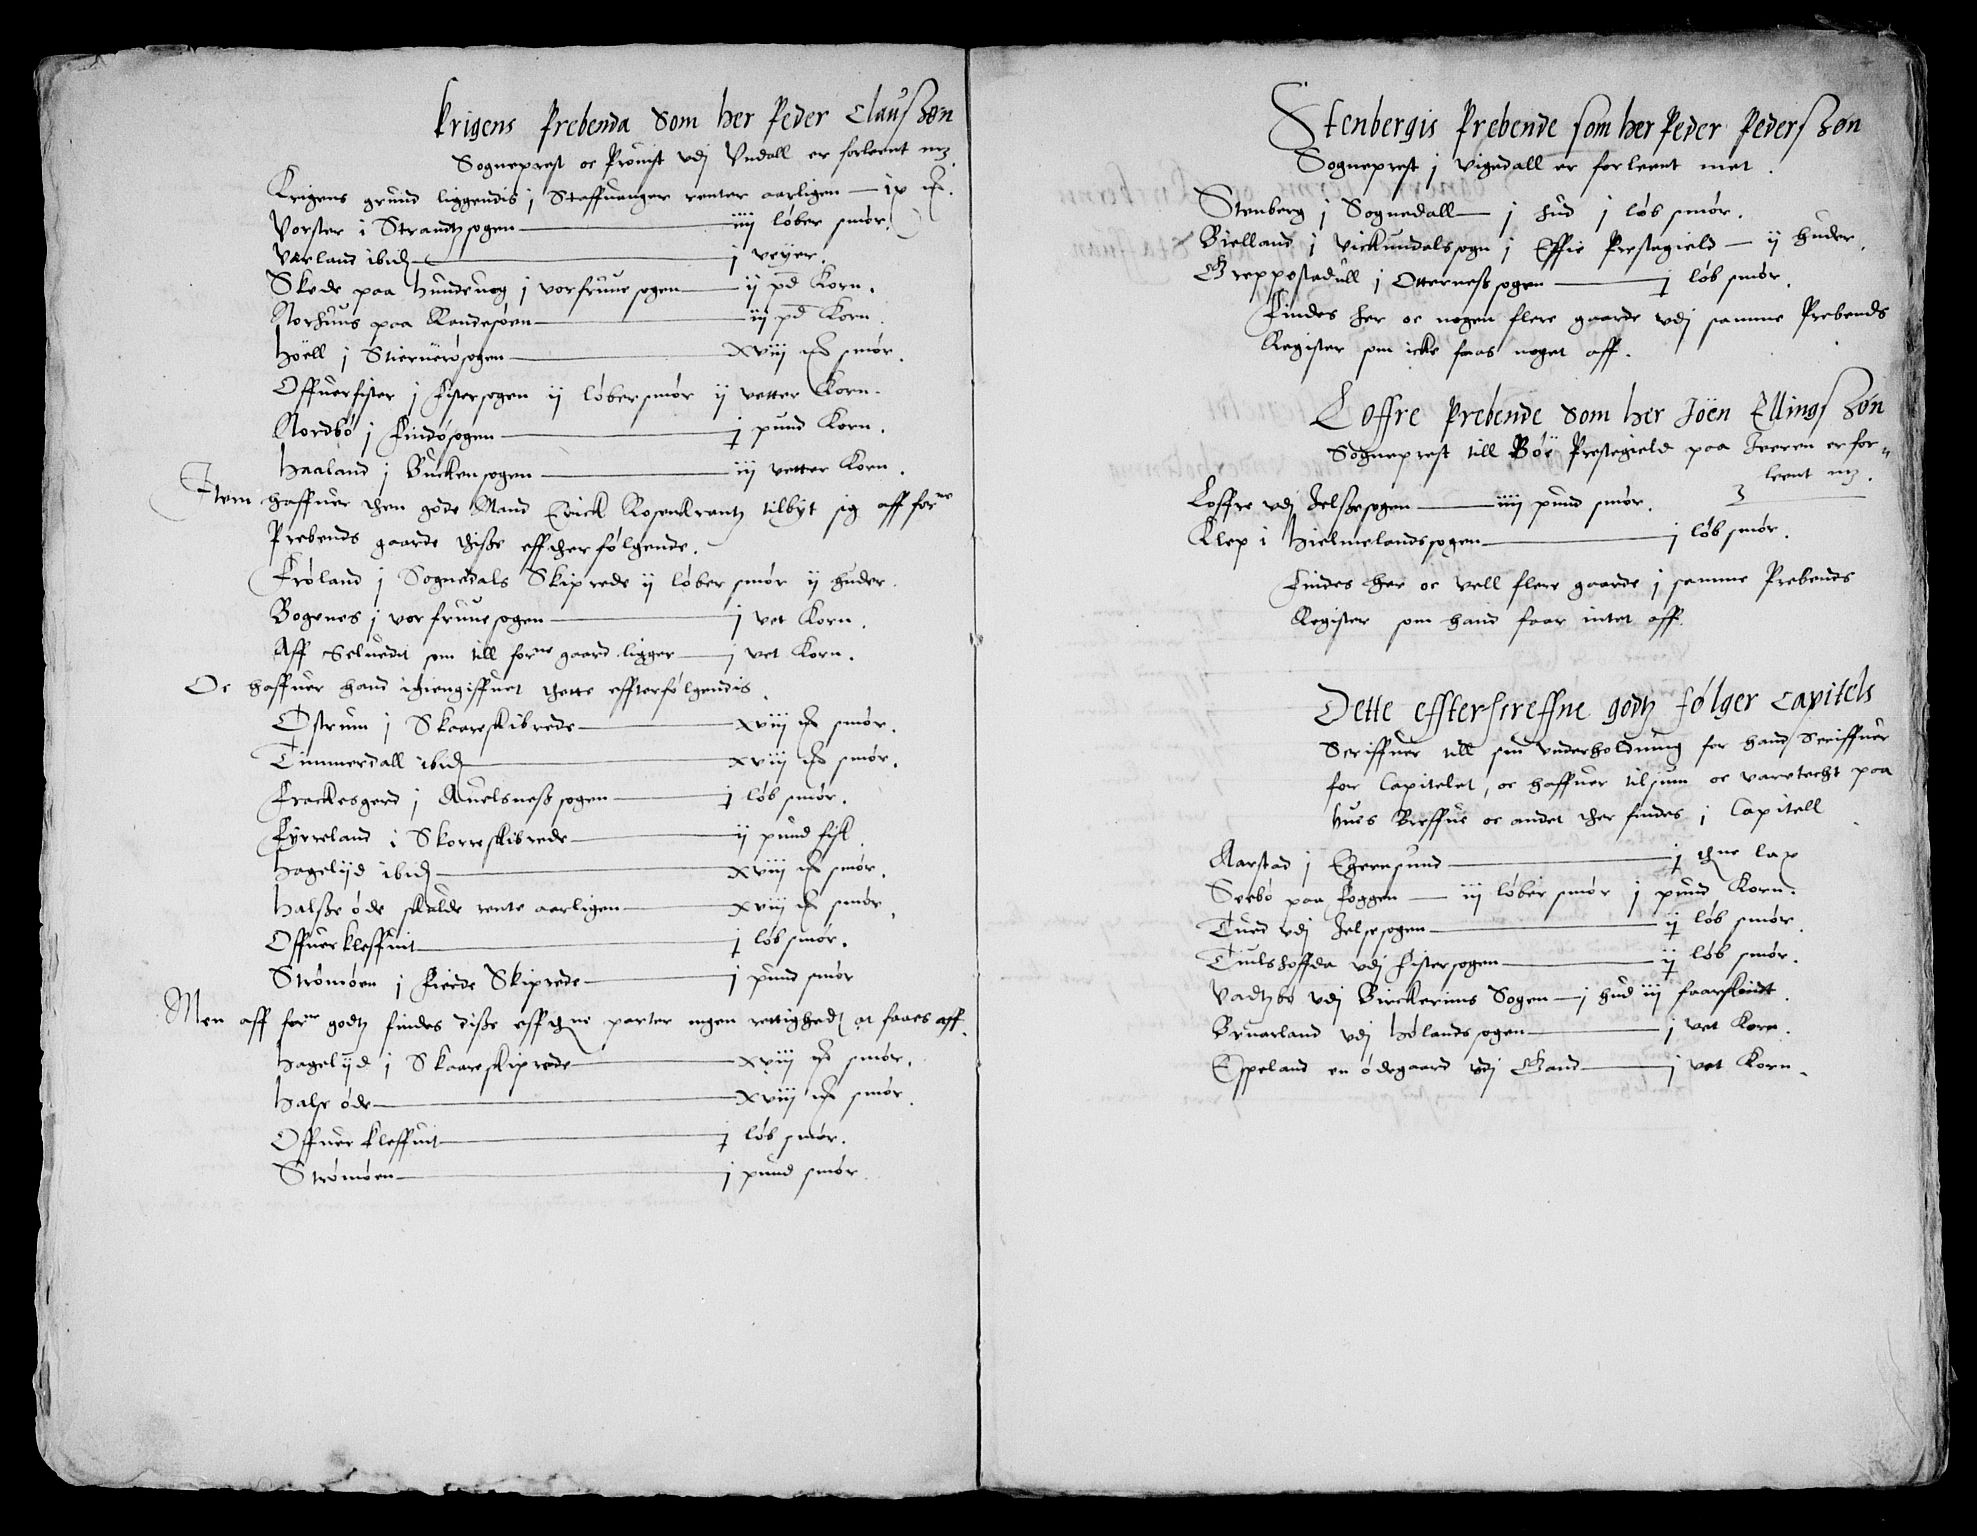 krigens Prebenda som her Peder Clausszøn
Sogneprest oc Prouist vdj Vndall er forleent m3
Krigens grund liggendis j Staffuanger renter aarligen — ix
Vorster i Strandzsogen — iiij løber smør
Varland ibid — j veyer.
Skede paa Hundeuog j vorfruue sogen — ij pd Korn.
Norhuus paa Randesøen — iij pd Korn
Høell j Stiernerøsogen — xviij smør.
Offuerfister j Fistersogen ij løber smør ij vetter Korn.
Nordbø j Findøsogen — j pund Korn.
Haaland j Buckensogen — iij vetter Korn.
Item haffuer then gode Mand Erick Rosenkrantz tilbyt sig aff forne
Prebends gaarde thisse effther følgende.
Frøland j Sognedals Skiprede ij løber smør ij huder.
Bogenes j vor fruue sogen — j vet Korn.
Aff Seluedit som till forne gaard ligger — j vet Korn.
Oc haffuer hand igiengiffuet thette effterfølgendis
Ostrum j Skaareskibrede — xviij smør.
Timmerdall ibid — xviij smør.
Frackesgerd j Auelsness sogen — j løb smør.
Fyrreland i Skorreskibrede — ij pund fisk
Hagelijd ibid — xviij smør.
Halsse øde skulde rente aarligen — xviij smør
Offuerkleffuit — j løb smør.
Strømøen j Fierde Skiprede — j pund smør
Men aff forne godz findes disse effthne parter ingen rettighed at faaes aff.
Hagelijd j Skaareskiprede — xviij smør.
Halse øde — xviij smør
Offuer kleffuit — j løb smør.
Strømøen — j pund smør
Stenbergis Prebende som her Peder Pederszøn
Sogneprest j Vigedall er forleent met.
Stenberg j Sognedall — j hud j løb smør.
Bielland j Vickundalsogn j Effie Prestegield — ij huder.
Greppestadull j Otternessogen — j løb smør.
Findes her oc nogen flere gaarde vdj samme Prebends
Register som icke faas noget aff.
Loffre Prebende som her Joen Ellingszøn
Sogneprest till Bøe Prestegield paa Jeeren er for-
leent m3.
Loffre vdj Jelssesogen — iiij pund smør.
Klep i Hielmelandssogen — j løb smør.
Findes her oc vell flere gaarde j samme Prebends
Register som hand faar intet aff.
Dette effterscreffne godz følger Capitels
Scriffuer till sin vnderholdning for hand scriffuer
for Capitelet, oc haffuer tilsiun oc varetecht paa
hues Breffue oc andet ther findes j Capitell
Aarstad j Egersund — j thne lax
Seebø paa Foggen — iij løber smør j pund Korn.
Tued vdj Jelsesogen — ij løb smør.
Tiulshoffda vdj Fistersogen — ij løb smør.
Vadzbø vdj Birckerims Sogen — j hud iij faarskindt.
Bruarland vdj Hølandssogen — j vet Korn.
Espeland en ødegaard vdj Gand — j vet Korn.